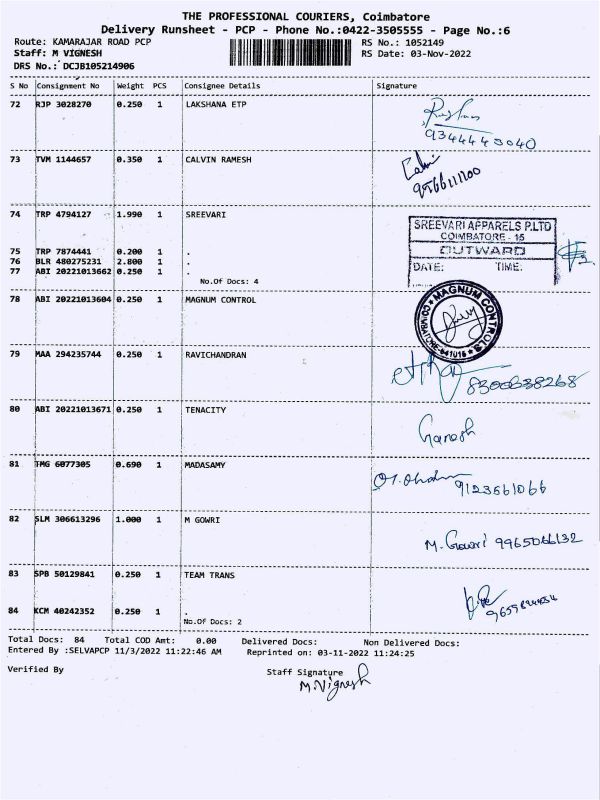 THE PROFESSIONAL COURIERS, Coimbatore
Delivery Runsheet - PCP - Phone No.:0422-3505555 - Page No.:6
Route: KAMARAJAR ROAD PCP RS No.: 1052149
Staff: M VIGNESH RS Date: 03-Nov-2022
DRS No.: DCJB105214906
S No Consignment No Weight PCS Consignee Details Signature
72 RJP 3028270 0.250 1 LAKSHANA ETP
9344443040
73 TVM 1144657 0.350 1 CALVIN RAMESH
9566111100
74 TRP 4794127 1.990 1 SREEVARI
SREEVARI APPARELS P.LTD
COIMBATORE - 15
OUTWARD
DATE: TIME:
75 TRP 7874441 0.200 1 .
76 BLR 480275231 2.800 1 .
77 ABI 20221013662 0.250 1 .
No.Of Docs: 4
78 ABI 20221013604 0.250 1 MAGNUM CONTROL
MAGNUM CONTROLS
COIMBATORE-641015
79 MAA 294235744 0.250 1 RAVICHANDRAN
8300638268
80 ABI 20221013671 0.250 1 TENACITY
Ganesh
81 TMG 6077305 0.690 1 MADASAMY
9123661066
82 SLM 306613296 1.000 1 M GOWRI
M. Gowri 9965066132
83 SPB 50129841 0.250 1 TEAM TRANS
84 KCM 40242352 0.250 1 .
No.Of Docs: 2
Total Docs: 84 Total COD Amt: 0.00 Delivered Docs: Non Delivered Docs:
Entered By :SELVAPCP 11/3/2022 11:22:46 AM Reprinted on: 03-11-2022 11:24:25
Verified By Staff Signature
M.Vignesh